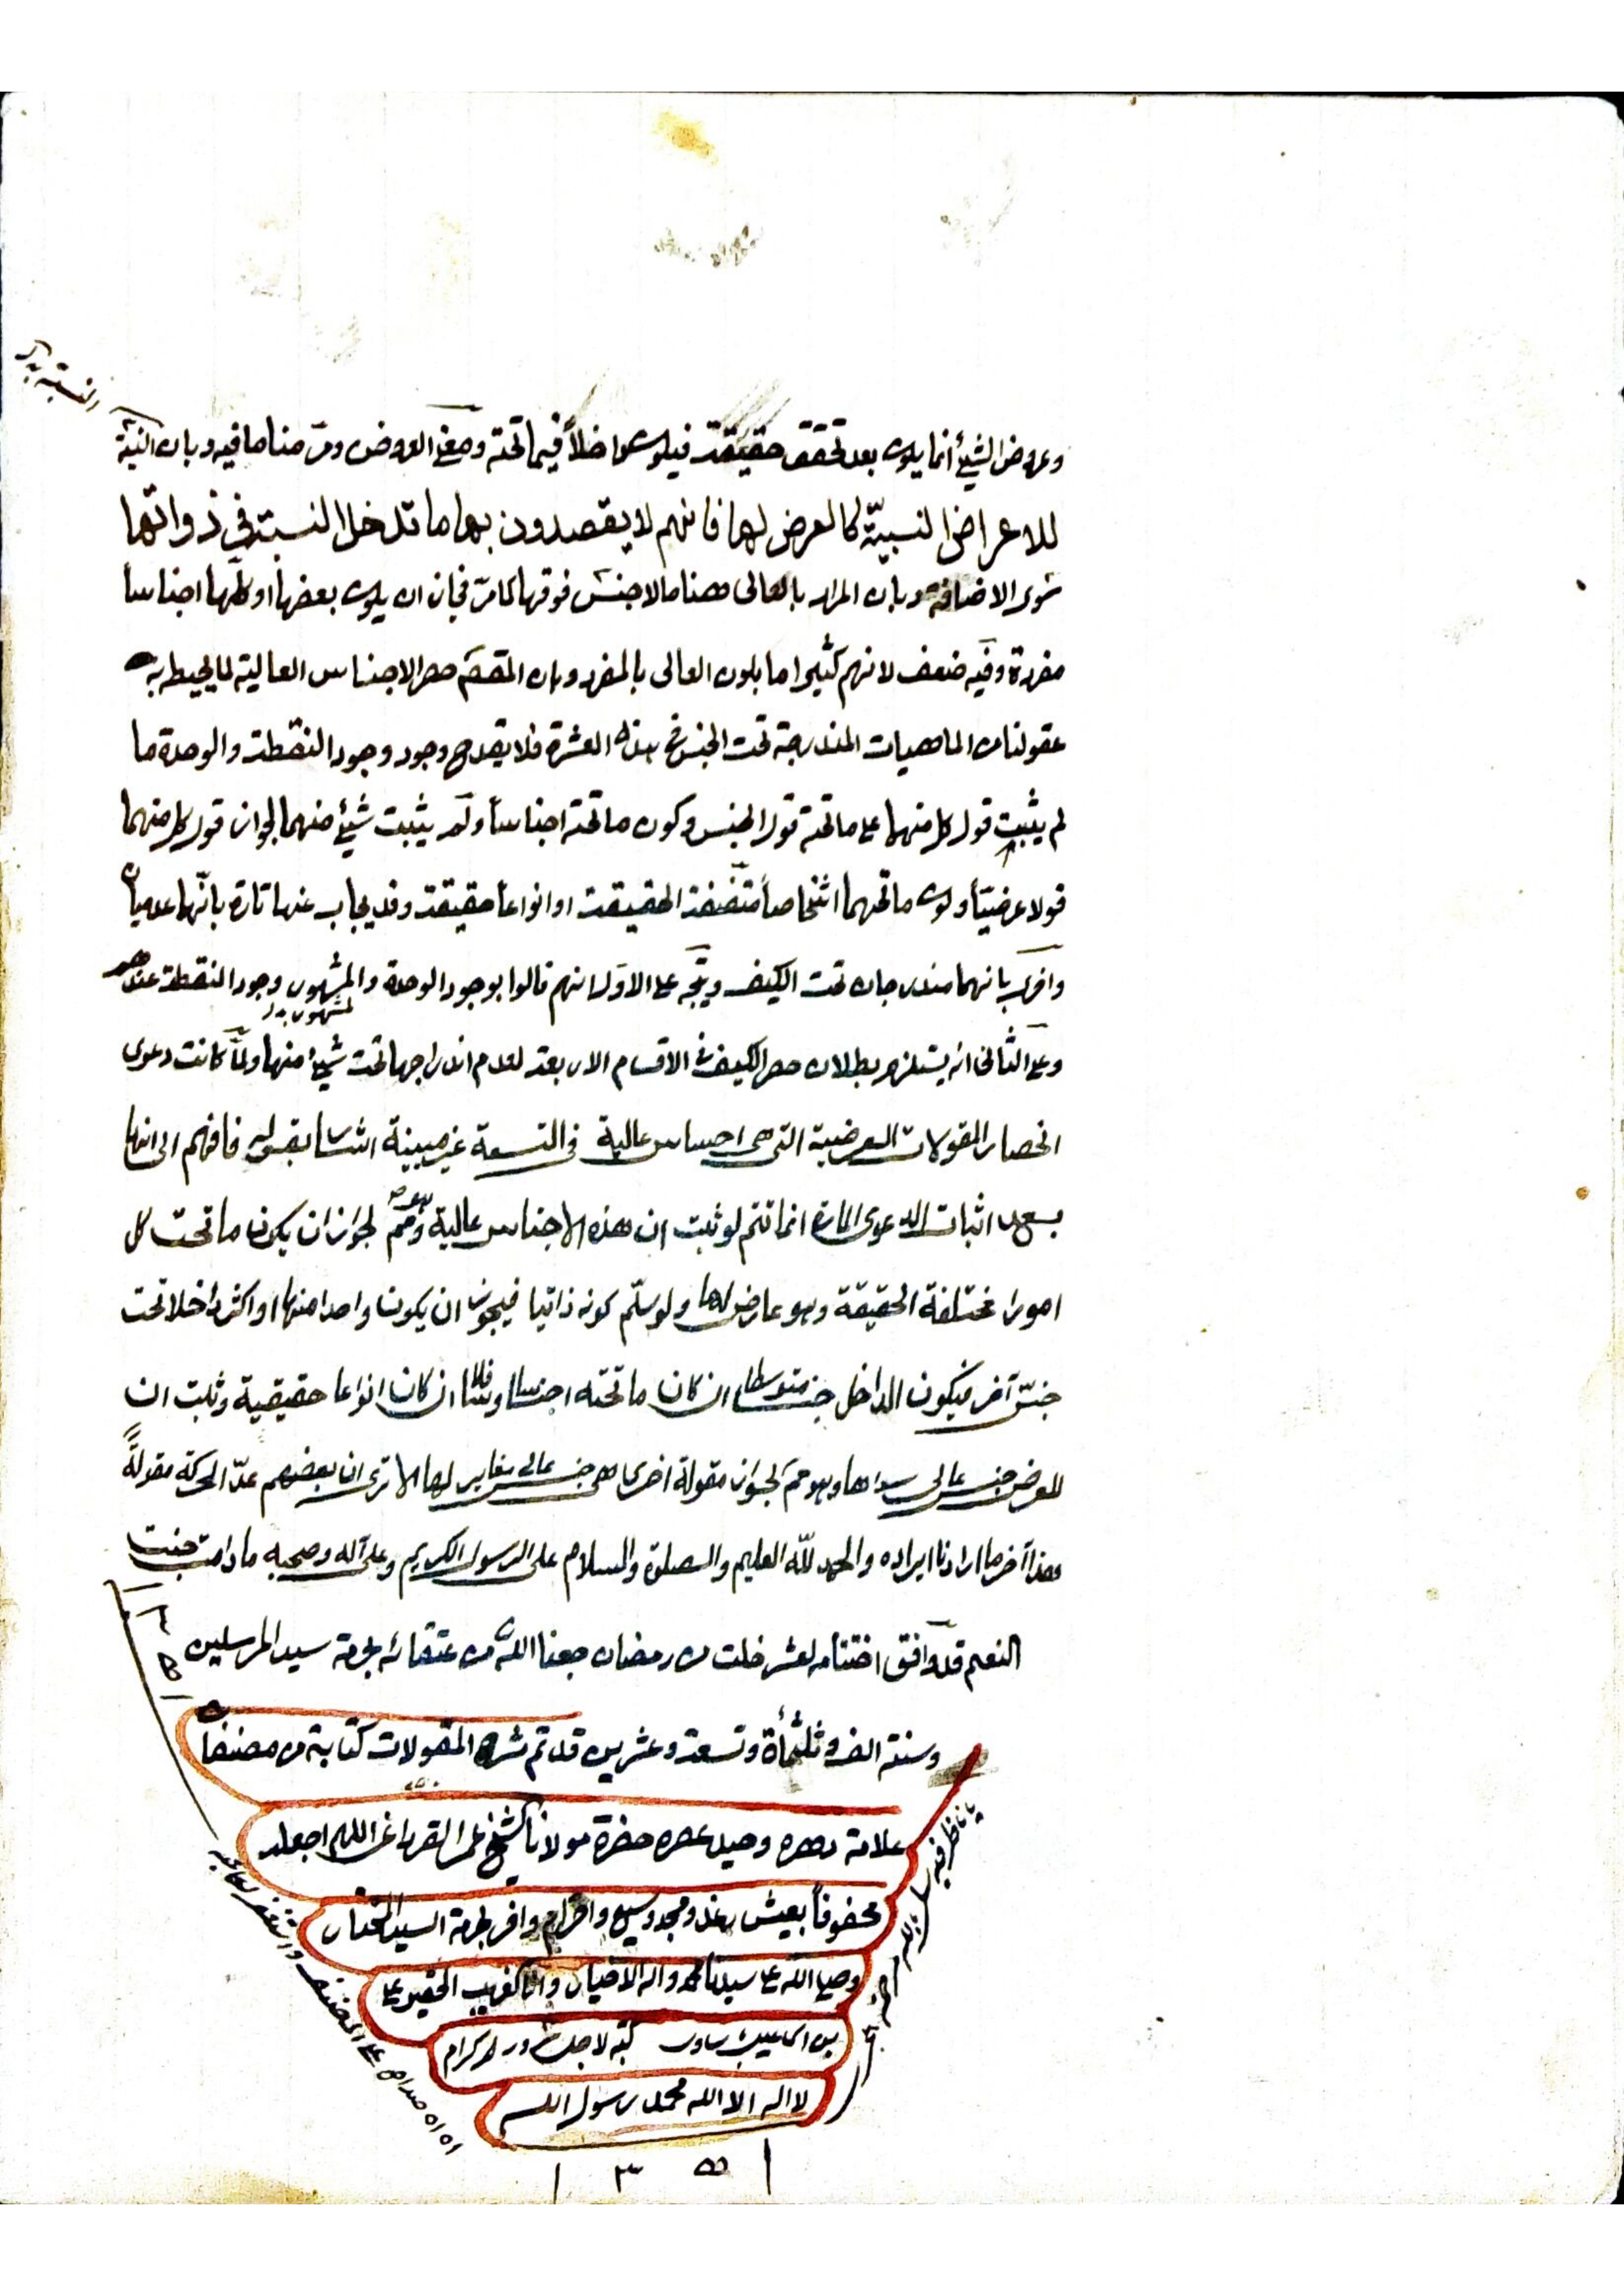 النسبة بدل
وعروض الشيئ انما يكون بعد تحقق حقيقته فيكون داخلاً فيما تحته ومعنى العروض ومرّ منا ما فيه وبان النسبة
للاعراض النسبيّة كالعرض لها فانهم لا يقصدون بها ما تدخل النسبة في ذواتها
سوى الاضافة وبان المراد بالعالى ههنا ما لا جنس فوقها كما مرّ فجاز ان يكون بعضها او كلّها اجناسا
مفردة وفيه ضعف لانهم كثيرا ما العالى بالمفرد وبان المقصَم حصر الاجناس العالية لما يحيط به
عقولنا من الماهيات المندرجة تحت الجنس فى هذه العشرة فلا يقدح وجود وجود النقطة والوحدة ما
لم يثبت قول كل منهما على ما تحته قول الجنس وكون ما تحته اجناساً ولم يثبت شيئ منهما لجواز قول كل منهما
قولا عرضيّاً وكون ما تحتهما اشخاصاً متفقة الحقيقة او انواعاً حقيقة وقد يجاب عنها تارة بانّها عدميان
واخرى بانهما مندرجان تحت الكيف ويتّجه على الاوّل انهم قالوا بوجود الوحدة والمشهور وجود النقطة عندهم
لمشهور بدل
وعلى الثانى انه يستلزم بطلان حصر الكيف فى الاقسام الاربعة لعدم اندراجها تحت شيئ منها ولمّا كانت دعوى
انحصار المقولات العرضية التى هى اجناس عالية فى التسعة غير مبينة اشار بقوله فافهم الى انها
بعد اثبات الدعوى المارة انما تتم لو ثبت ان هذه الاجناس عالية وهو مم لجواز ان يكون ما تحت كل
امورا مختلفة الحقيقة وهو عارض لها ولو سلّم كونه ذاتيا فيجوز ان يكون واحدا منها او اكثر داخلا تحت
جنسّ آخر فيكون الداخل جنسا متوسطا ان كان ما تحته اجناسا وسافلا ان كان انواعا حقيقية وثبت ان
للعرض جنس عالى سواها وهو مم لجواز مقولة اخرى هى جنس عالى مغاير لها الا ترى ان بعضهم عدّ الحركة مقولةً
هذا آخر ما اردنا ايراده والحمد للّه العليم والصلوة والسلام على الرسول الكريم وعلى آله وصحبه ما دامت جنت
النعيم قد وافق اختتامه لعشر خلت من رمضان جعلنا اللّه من عتقائه بحرمة سيد المرسلين
وسنة الف وثلثمأة وتسعة وعشرين قد تم شرح المقولات كتابة من مصنفات
علامة دهره وحيد عصره حضرة مولانا الشيخ عمر القرداغى اللهم اجعله
محفوفاً بعيش رغد ومجد وسيع واحترام وافر بحرمة السيد المختار
وصلى اللّه على سيدنا محمد واله الاخيار وانا الغريب الحقير على
بن كتبه لاجل
لا اله الا الله محمد رسول الله
١٣٥
يا ناظرا فيه سل بالله مرحمة
على المصنف واستغفر لصاحبه
١٣٥